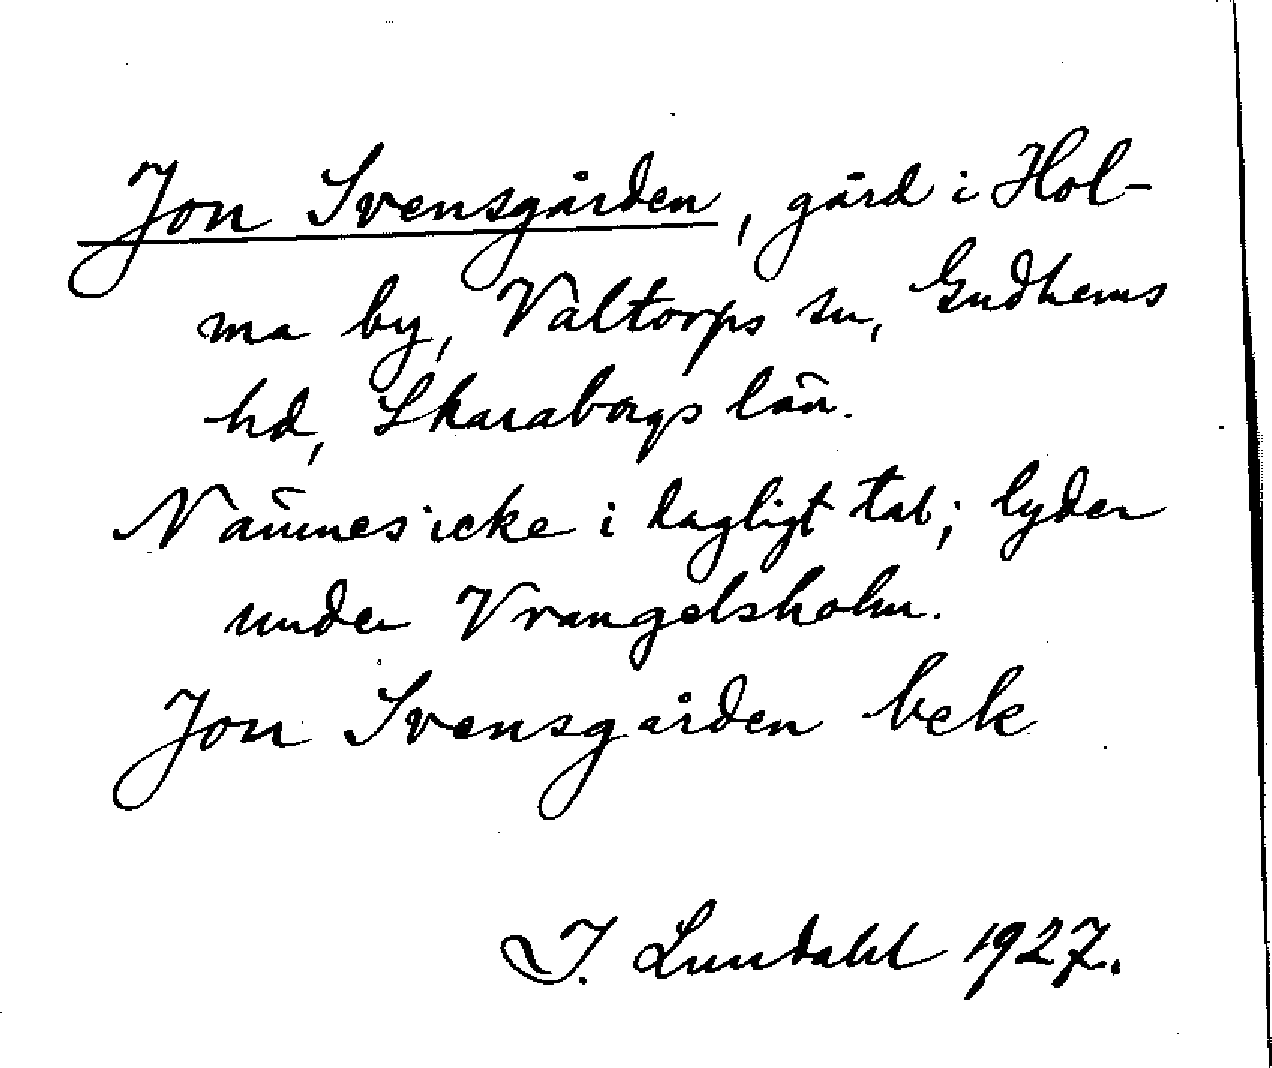 Jon Svensgården, gård i Hol-
ma by, Valtorps sn, Gudhems
hd, Skaraborgs län.
Nämnes icke i dagligt tal; lyder
under Vrangelsholm.
Jon Svensgården bek
I. Lundahl 1927.